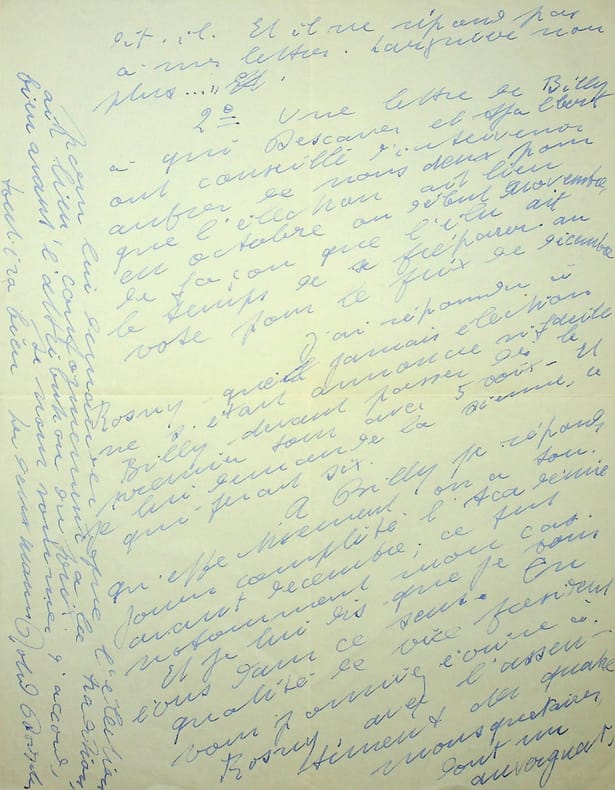 dit-il. Et il ne répond pas
à mes lettres. Larguier non
plus....
2e Une lettre de Billy
à qui Descaves et
ont conseillé d'intervenir
auprès de nous deux pour
que l'élection ait lieu
en octobre ou début novembre,
de façon que l'élu ait
le temps de se préparer au
vote pour le prix de décembre
J'ai répondu à
Rosny qu'
jamais élection
ne s'était annoncée si facile
Billy devant passer dès le
premier tour avec 5 voix - Et
je lui demande la sienne, ce
qui ferait six.
A Billy je réponds
qu'effectivement on a tou-
jours complété l'Académie
avant décembre; ce fut
notamment mon cas.
Et je lui dis que je vous
écris dans ce sens. En
qualité de vice président
vous pourriez écrire à
Rosny, avec l'assen-
timent des quatre
mousquetaires
dont un
auvergnat,
pour lui demander que l'élection
ait lieu conformément à la tradition
bien avant l'attribution du prix.
Si nous sommes d'accord,
tout ira bien